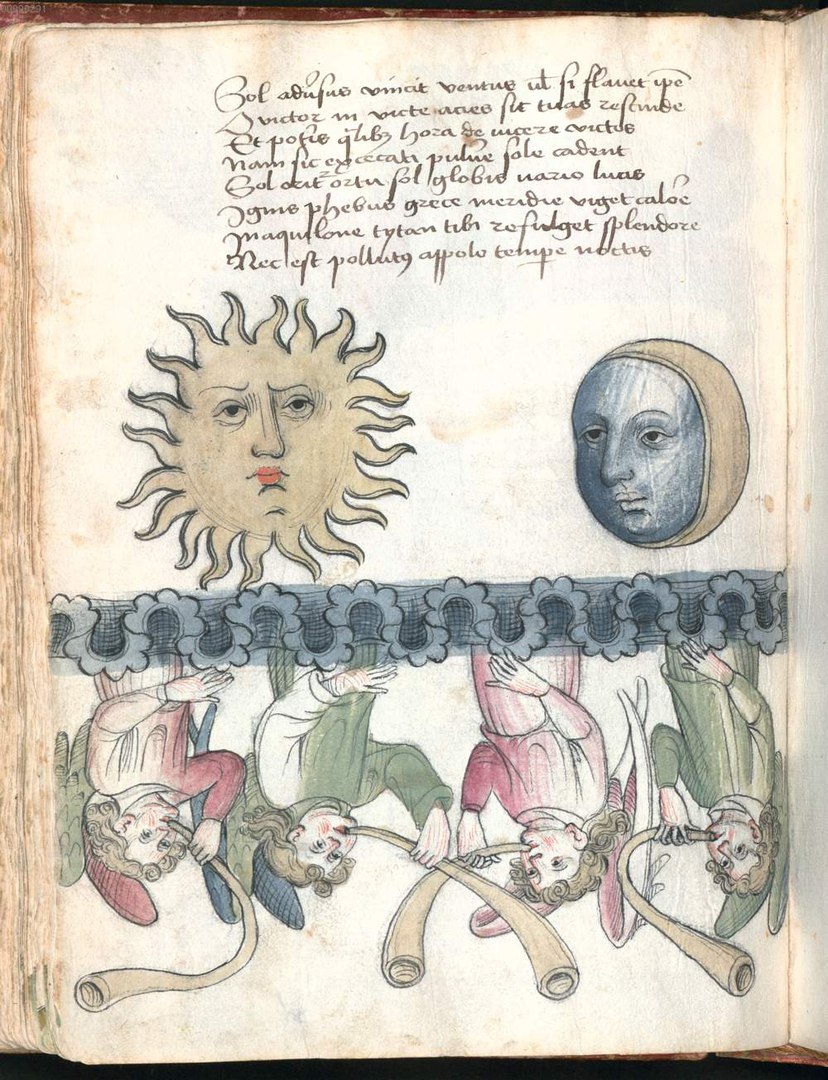 Sol adūsus vincit ventus ul si flauet ipē
O victor in victe acies sit tuas rescinde
Et potīs qlibz hora de uicere victos
Nam sic excecati puluē sole cadent
Sol orit ortu sol globis uario lucis
Ignis phebus grece meridie viget calōe
In aquilone tytan tibi refulget splendore
Nec est pollutꝰ appolo tempe noctis